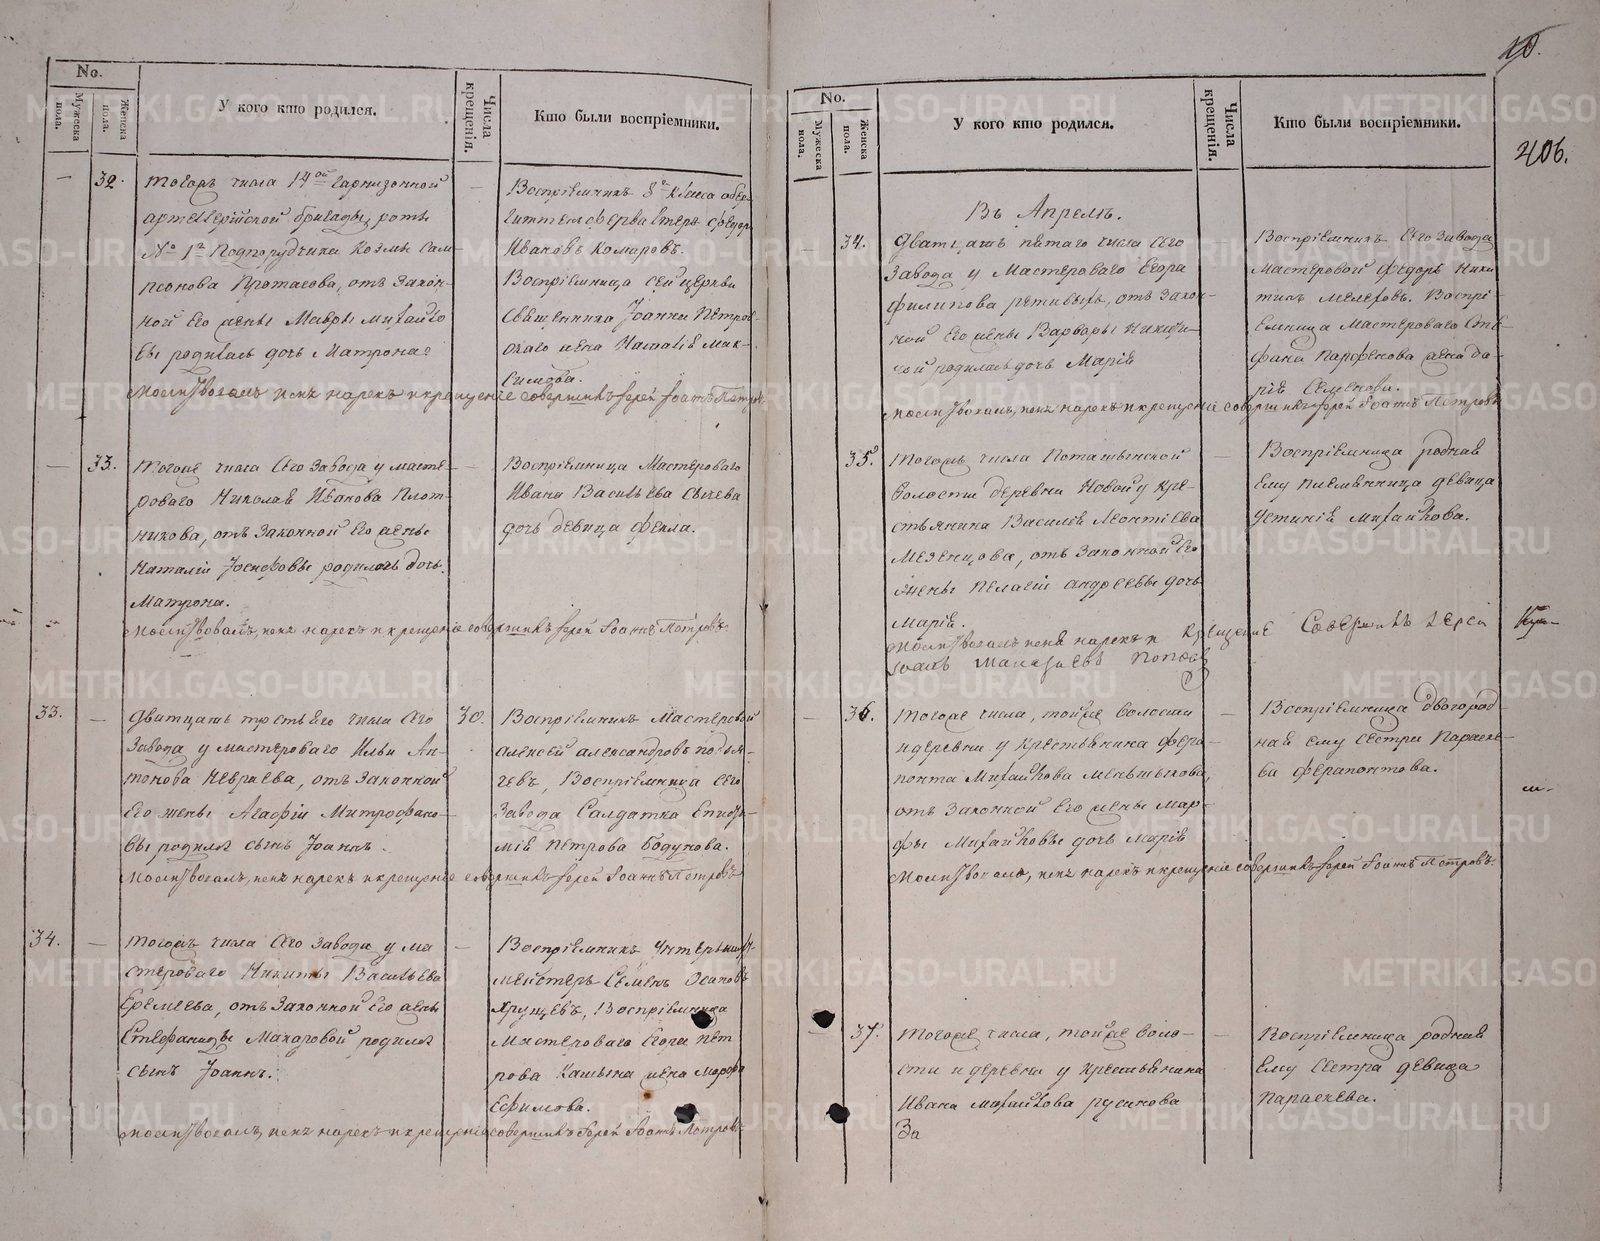 No.
Мужеска пола.
Женска пола.
У кого кто родился.
Числа крещенія.
Кто были воспріемники.
32.
тогожъ числа 14ой гарнизонной
артеллерійской бригады, роты
№ 1й Подпорудчика Козмы Сам-
псонова Протасова, отъ закон-
ной его жены Мавры Михайло
вы родилась дочь Матрона
Воспріемникъ 8го класса обер
Иванъ Комаровъ.
Воспріемница сей церкви
Священника Іоанна Петров-
скаго жена Наталія Мак-
симова.
молитвовалъ, имя нарекъ и крещеніе совершилъ Іерей Іоаннъ Петровъ
33.
тогоже числа сего завода у масте-
роваго Николая Иванова Плот-
никова, отъ законной его жены
Наталіи Іосифовы родилась дочь
Матрона.
Воспріемница Мастероваго
Ивана Васильева Сычева
дочь девица Фекла.
молитвовалъ, имя нарекъ и крещеніе совершилъ Іерей Іоаннъ Петровъ
33.
Дватцать третьяго числа сего
завода у мастероваго Ильи Ан-
тонова Невраева, отъ законной
его жены Агафіи Митрофано-
вы родился сынъ Іоаннъ.
30.
Воспріемникъ Мастеровой
Алексей Александровъ Подъя-
чевъ, Воспріемница сего
завода Салдатка Епифи-
мія Петрова Бодунова.
молитвовалъ, имя нарекъ и крещеніе совершилъ Іерей Іоаннъ Петровъ
34.
тогожъ числа сего завода у ма
стероваго Никиты Васильева
Еремеева, отъ законной его жены
Стефаниды Макаровой родился
сынъ Іоаннъ.
Воспріемникъ Унтершихт-
мейстеръ Семенъ Осиповъ
Хрущевъ, Воспріемница
Мастероваго Егора Пет
рова Кашина жена Марфа
Ефимова.
молитвовалъ, имя нарекъ и крещеніе совершилъ Іерей Іоаннъ Петровъ
406.
No.
Мужеска пола.
Женска пола.
У кого кто родился.
Числа крещенія.
Кто были воспріемники.
Въ Апреле.
34.
Дватцать пятаго числа сего
завода у Мастероваго Егора
Филипова Ретивыхъ, отъ закон-
ной его жены Варвары Никити-
ной родилась дочь Марія
Воспріемникъ сего завода
мастеровой Федоръ Ники
тинъ Мелеховъ. Воспрі-
емница Мастероваго Сте-
фана Парфенова жена Да-
рія Семенова.
молитвовалъ, имя нарекъ и крещеніе совершилъ Іерей Іоаннъ Петровъ
35.
тогожъ числа Поташинской
волости деревни Новой у кре-
стьянина Василія Леонтіева
Мезенцова, отъ законной его
жены Пелагіи Андреевы дочь
Марія.
Воспріемница родная
ему племянница девица
Устинія Михайлова.
молитвовалъ имя нарекъ и крещение Совершилъ
Поповъ
36.
тогоже числа, тойже волости
и деревни у крестьянина Фера-
понта Михайлова Меньшикова,
отъ законной его жены Мар-
фы Михайловы дочь Марія
Воспріемница двоюрод-
ная ему сестра Параске-
ва Ферапонтова.
молитвовалъ, имя нарекъ и крещеніе совершилъ Іерей Іоаннъ Петровъ
37.
тогоже числа, тойже воло-
сти и деревни у крестьянина
Ивана Михайлова Русинова
За
Воспріемница родная
ему сестра девица
Параскева.
METRIKI.GASO-URAL.RU